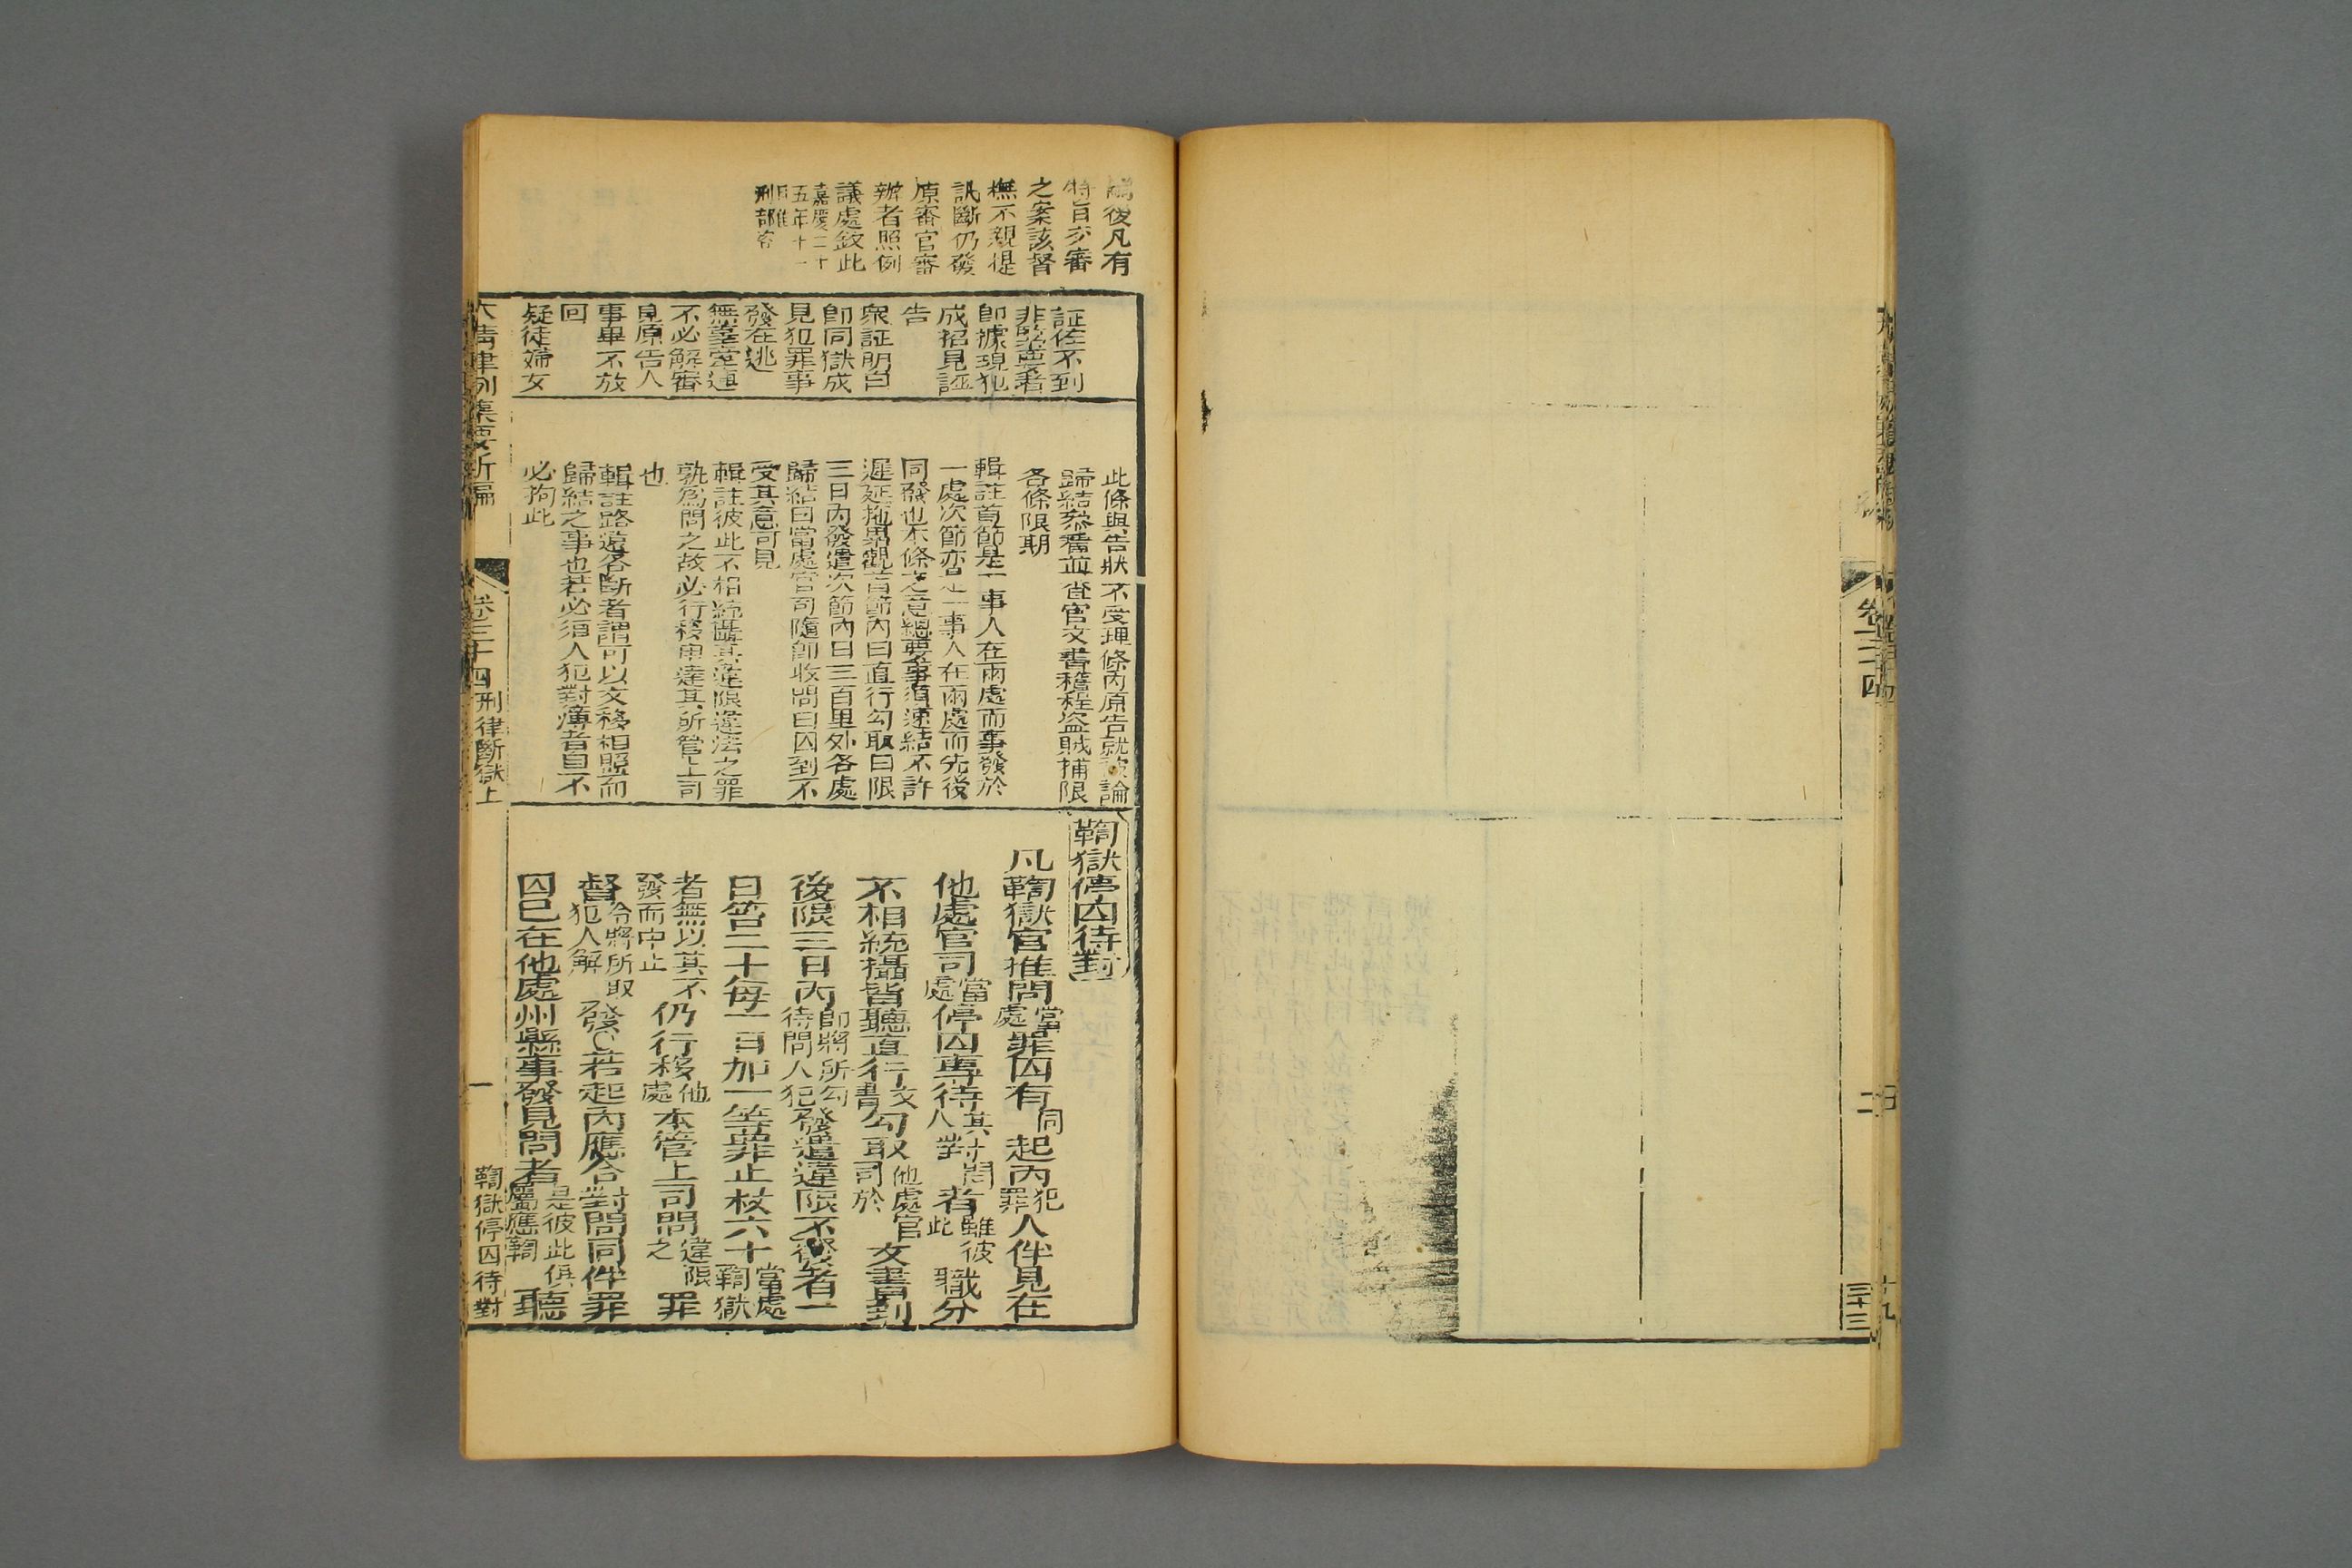 卷三十四
二
三十三
後凡有
特旨交審
之案該督
撫不親提
訊斷仍發
原審官審
辦者照例
議處欽此
嘉慶二十
五年十一
月准
刑部咨
証佐不到
非緊要者
即據現犯
成招見誣
告
衆証明白
即同獄成
見犯罪事
發在逃
無辜室逼
不必解審
見原告人
事畢不放
回
疑徒婦女
此條與告狀不受理條內原告就被論
歸結叅看並查官文書稽程盜賊捕限
各條限期
輯註首節是一事人在兩處而事發於
一處次節亦是一事人在兩處而先後
同發也本條之意總要事須速結不許
遲延拖累觀首節內曰直行勾取曰限
三日內發遣次節內曰三百里外各處
歸結曰當處官司隨即收問曰囚到不
受其意可見
輯註彼此不相統攝其違限違法之罪
孰爲問之故必行移申達其所管上司
也
輯註路遠各斷者謂可以文移相照而
歸結之事也若必須人犯對簿者自不
必拘此
鞫獄停囚待對
凡鞫獄官推問當處罪囚有同起內犯罪人伴見在
他處官司當處停囚專待其人對問者雖彼此職分
不相統攝皆聽直行文書勾取他處官司於文書到
後限三日內即將所勾待問人犯發遣違限不發者一
日笞二十每一日加一等罪止杖六十當處鞫獄
者無以其不發而中止仍行移他處本管上司問違限之罪
督令將所取犯人解發○若起內應合對問同伴罪
囚已在他處州縣事發見問者是彼此俱屬應鞫聽
大清律例集要新編
卷三十四
刑律斷獄上
一
鞫獄停囚待對